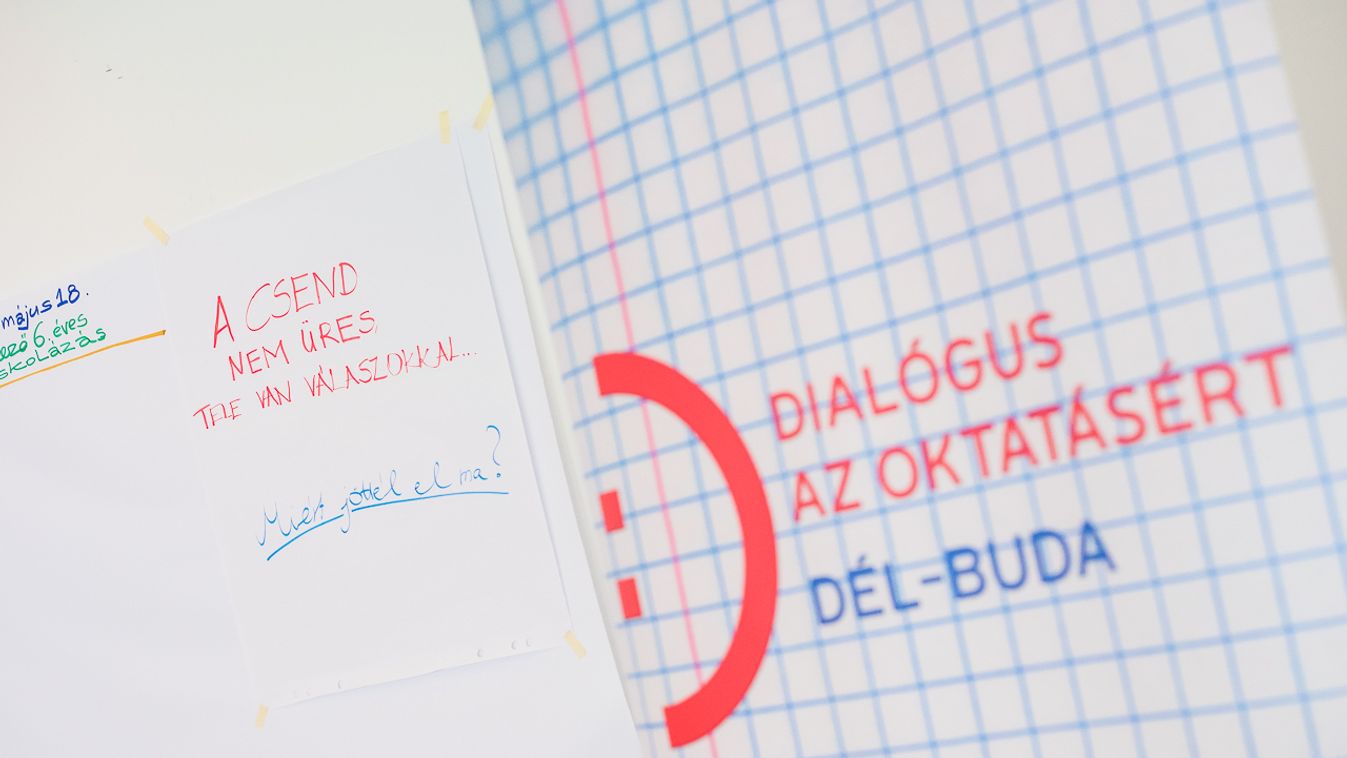 május 18.
6 éves
A CSEND
NEM ÜRES,
TELE VAN VÁLASZOKKAL...
Miért jöttél el ma?
DIALÓGUS
AZ OKTATÁSÉRT
DÉL-BUDA